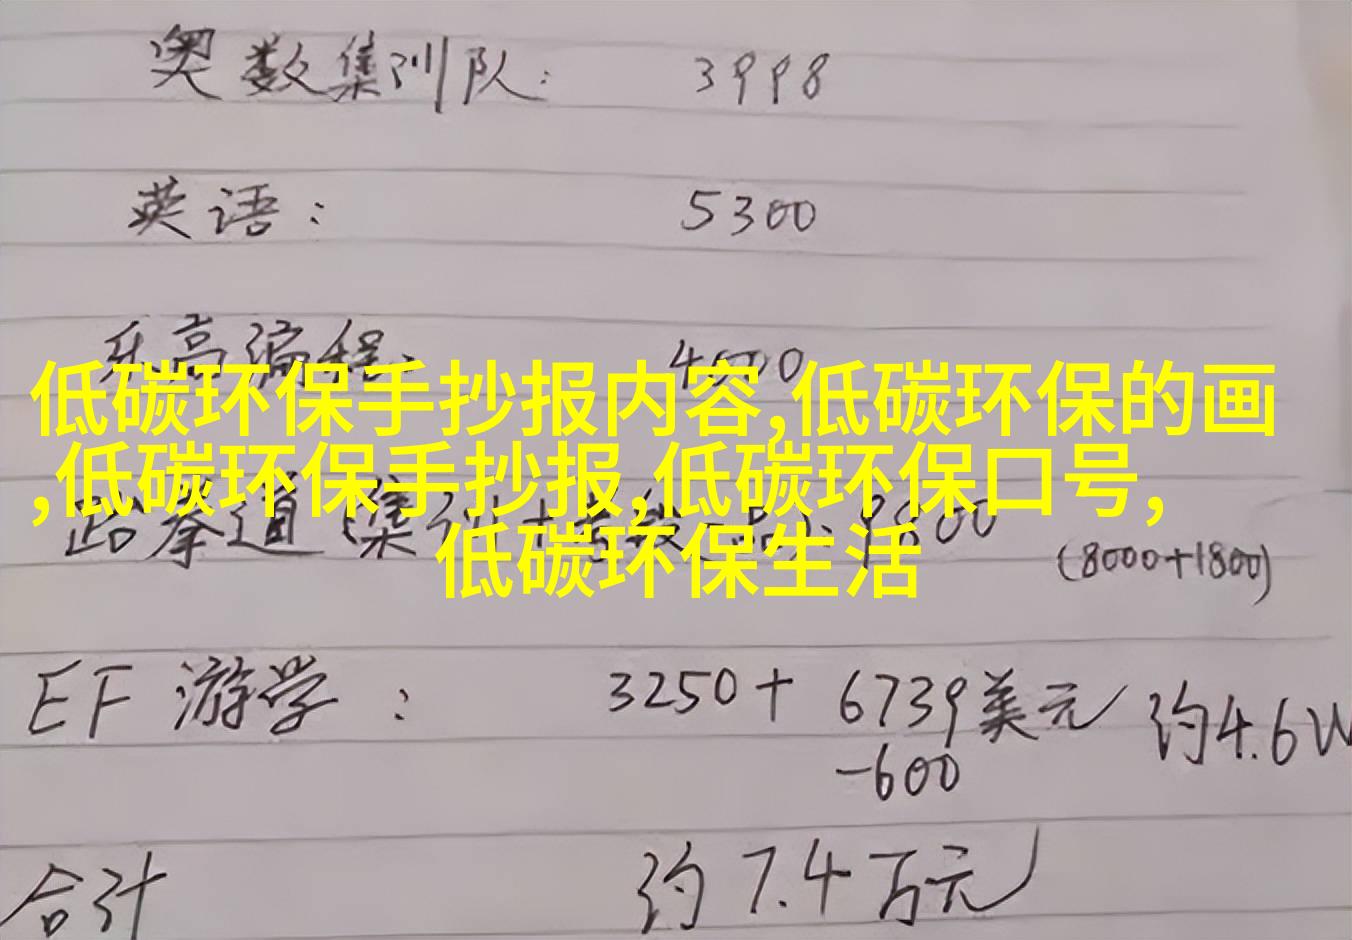 奥数集训队: 3998
英语: 5300
乐高编程: 4500
低碳环保手抄报内容,低碳环保的画
,低碳环保手抄报,低碳环保口号,
跆拳道(集训+考级 9800
(8000+1800)
低碳环保生活
EF 游学: 3250+6739美元 约4.6W
-600
合计 约7.4万元